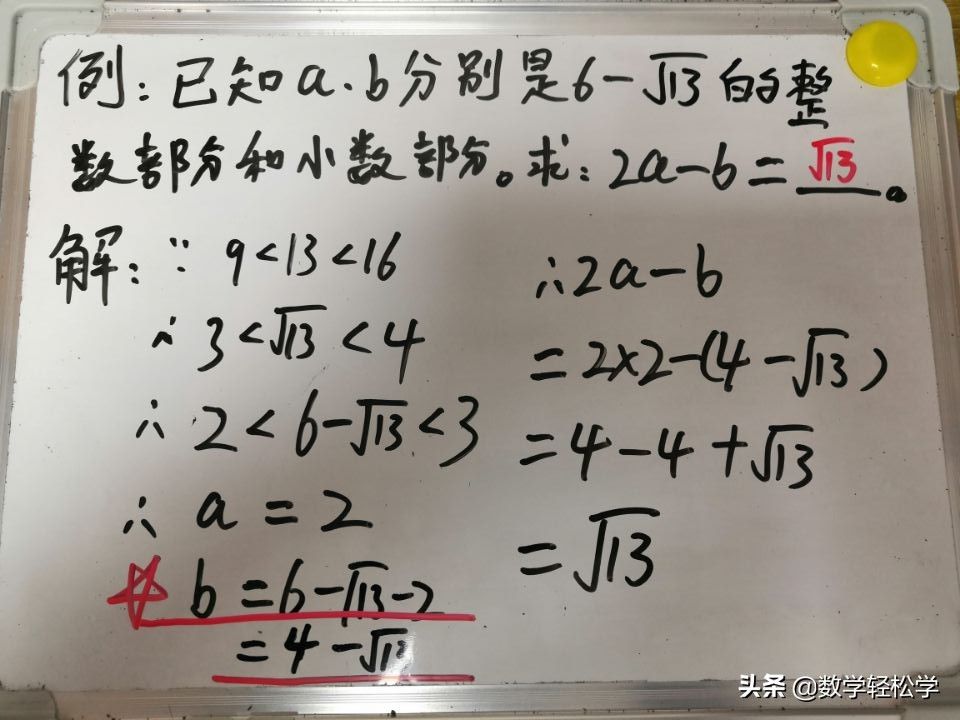 例:已知a.b分别是6-√13的整
数部分和小数部分。求:2a-b=√13。
解:∵ 9<13<16
∴ 3<√13<4
∴ 2<6-√13<3
∴ a=2
☆ b=6-√13-2
=4-√13
∴2a-b
=2×2-(4-√13)
=4-4+√13
=√13
头条 @数学轻松学